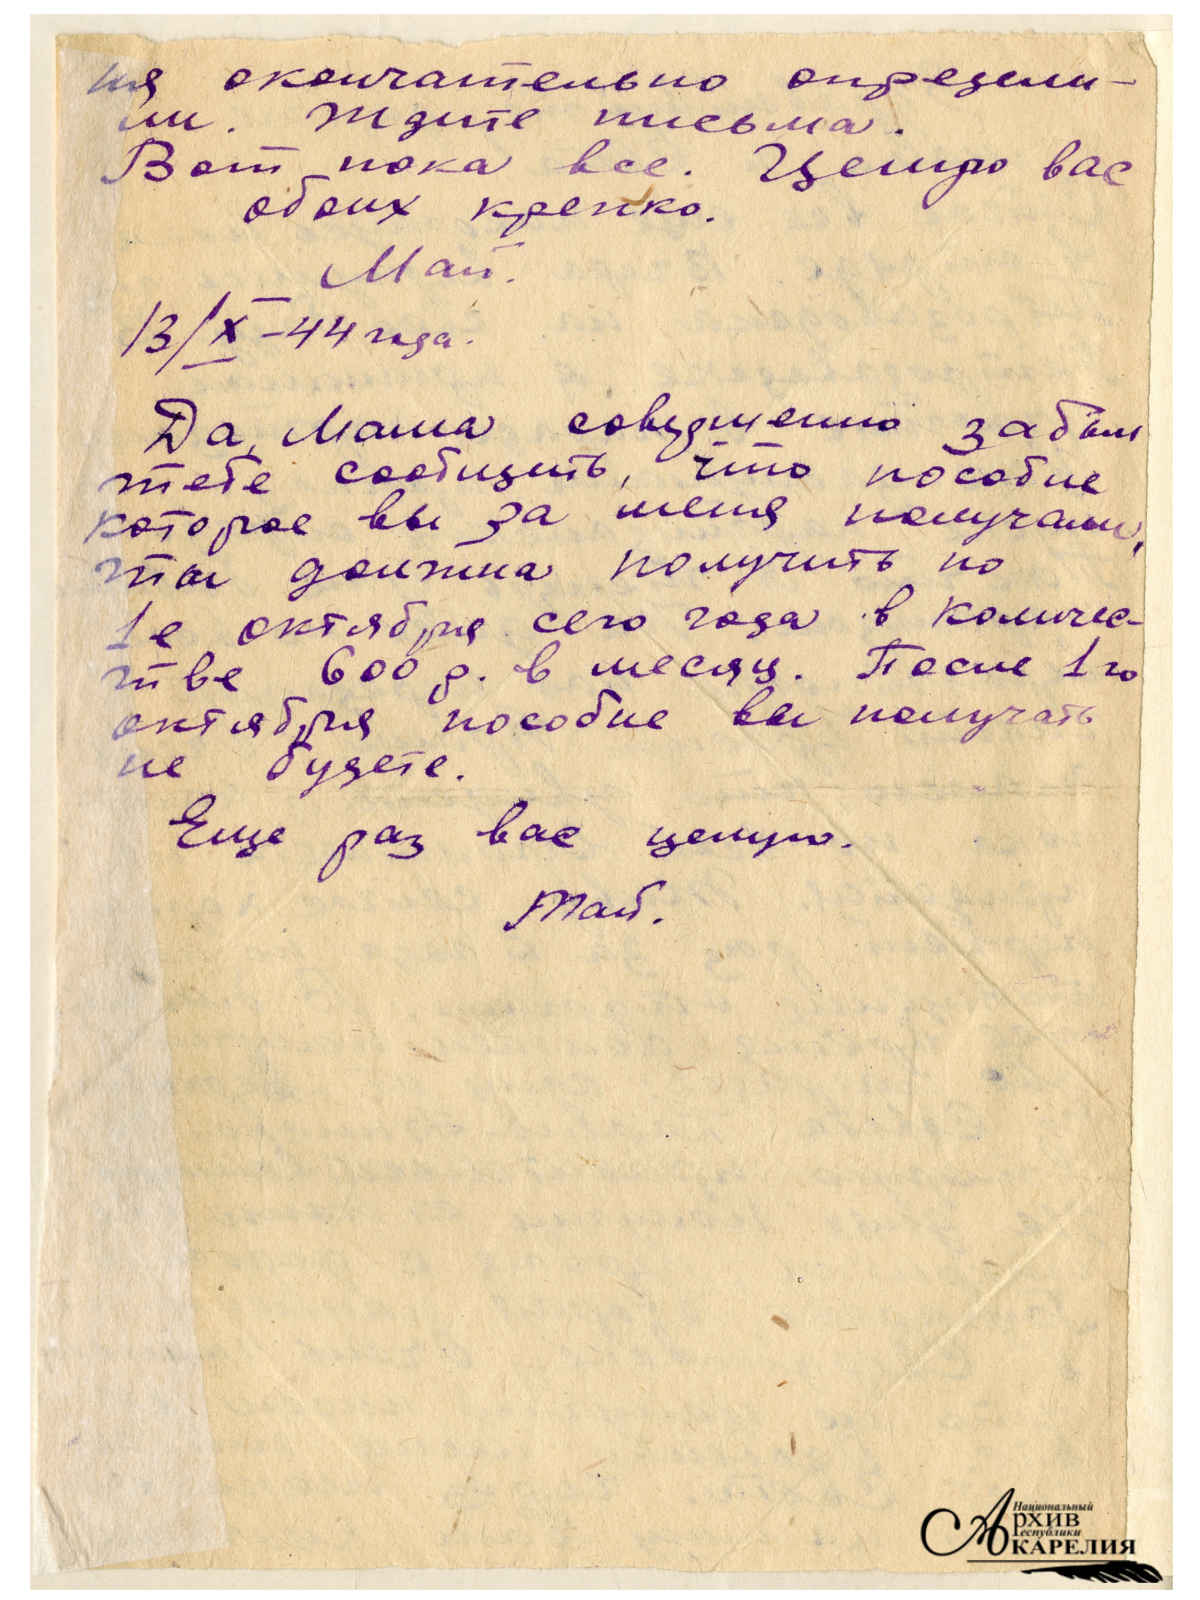 ня окончательно определи-
ли. Ждите письма.
Вот пока все. Целую вас
обоих крепко.
Май.
13/X-44 года.
Да, Мама совершенно забыл
тебе сообщить, что пособие
которое вы за меня получали,
ты должна получить по
1е октября сего года в количес-
тве 600 р. в месяц. После 1го
октября пособие вы получать
не будете.
Еще раз вас целую.
Май.
Национальный
Архив
Республики
Карелия